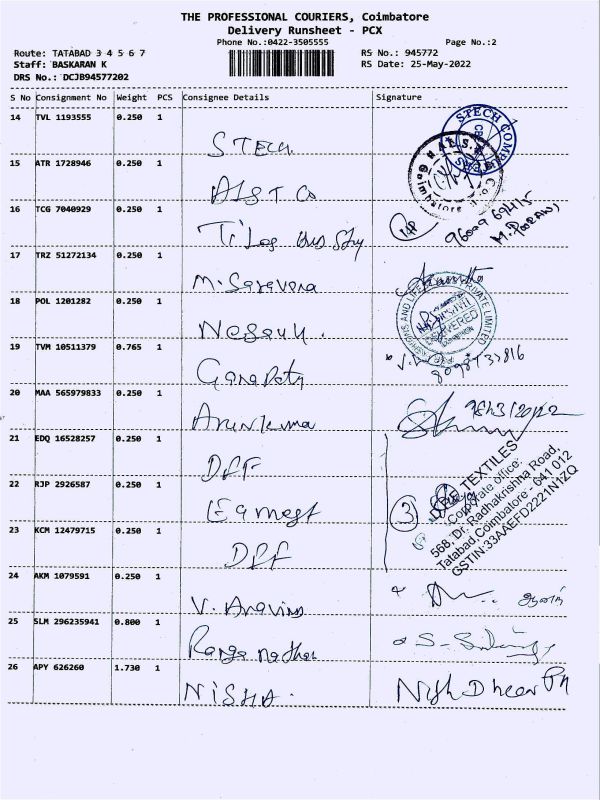 THE PROFESSIONAL COURIERS, Coimbatore
Delivery Runsheet - PCX
Phone No.:0422-3505555 Page No.:2
Route: TATABAD 3 4 5 6 7 RS No.: 945772
Staff: BASKARAN K RS Date: 25-May-2022
DRS No.: DCJB94577202
S No Consignment No Weight PCS Consignee Details Signature
14 TVL 1193555 0.250 1
STECH
STECH
15 ATR 1728946 0.250 1
Coimbatore
16 TCG 7040929 0.250 1
96009 69415
17 TRZ 51272134 0.250 1
M. Saravana
18 POL 1201282 0.250 1
PRIVATE LIMITED
19 TVM 10511379 0.765 1
Ganapaty
20 MAA 565979833 0.250 1
Arunkuma
21 EDQ 16528257 0.250 1
DFF
TEXTILES
Corporate office:
568, Dr. Radhakrishna Road,
Tatabad, Coimbatore - 641 012
GSTIN:33AAEFD2221N1ZQ
22 RJP 2926587 0.250 1
Earnest
3
23 KCM 12479715 0.250 1
DFF
24 AKM 1079591 0.250 1
V. Aravind
25 SLM 296235941 0.800 1
Ranganathan
26 APY 626260 1.730 1
NISHA.